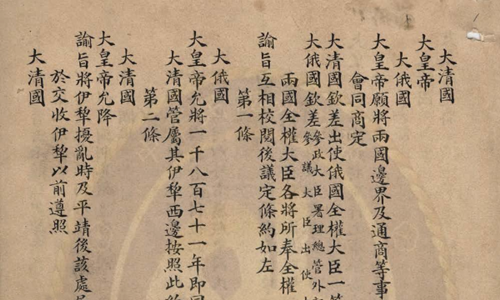 大清國
大皇帝
大俄國
大皇帝願將兩國邊界及通商等事
會同商定
大清國欽差出使俄國全權大臣一等
大俄國欽差參政大臣署理總管外
參議大臣出使
兩國全權大臣各將所奉全權
諭旨互相校閱後議定條約如左
第一條
大俄國
大皇帝允將一千八百七十一年即同
大清國管屬其伊犂西邊按照此約
第二條
大清國
大皇帝允降
諭旨將伊犂擾亂時及平靖後該處居
於交收伊犂以前遵照
大清國